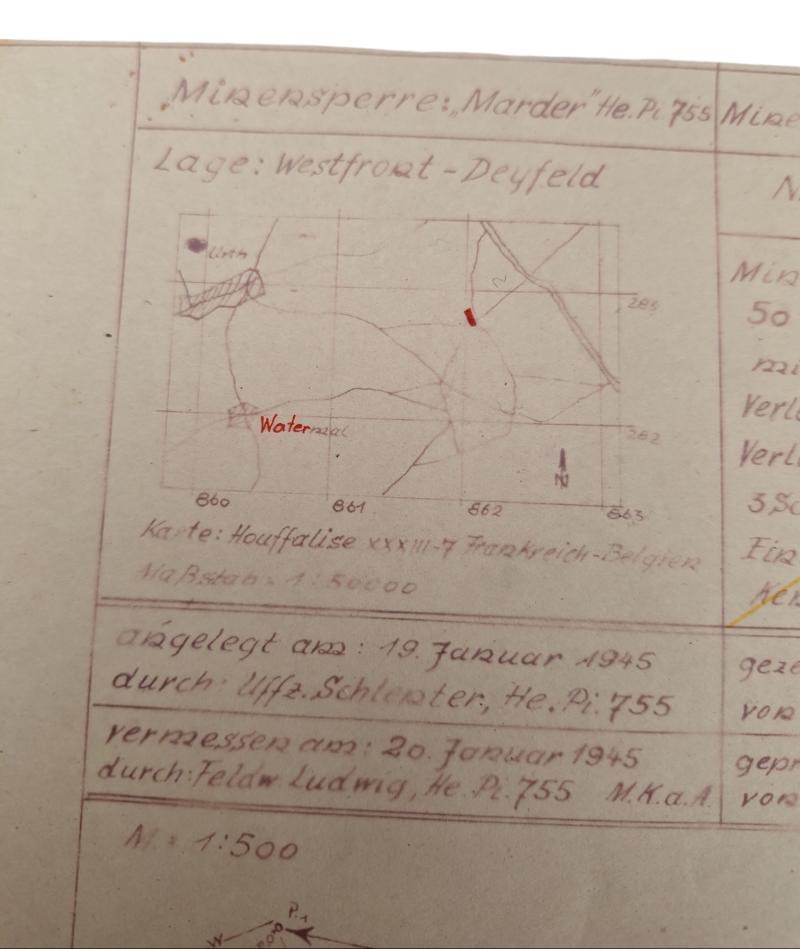 Minensperre: „Marder" He. Pi. 755
Mine
Lage: Westfront - Deyfeld
N
Urth
N
283
Watermal
282
N
860 861 862 863
Karte: Houffalise XXXIII-7 Frankreich-Belgien
Maßstab = 1:50000
Min
50
mi
Verl
Verl
3 Sc
Ein
Ken
angelegt am: 19. Januar 1945
durch: Uffz. Schlenter, He. Pi. 755
geze
von
vermessen am: 20. Januar 1945
durch: Feldw Ludwig, He. Pi. 755 M.K.a.A.
gepr
von
M = 1:500
P.1
W